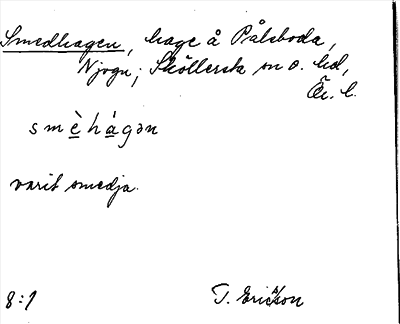 Smedhagen, hage å Pålsboda,
Njogn; Sköllersta sn o. hd,
Ör. l.
smὲhágən
varit smedja.
8:1
T. Ericsson